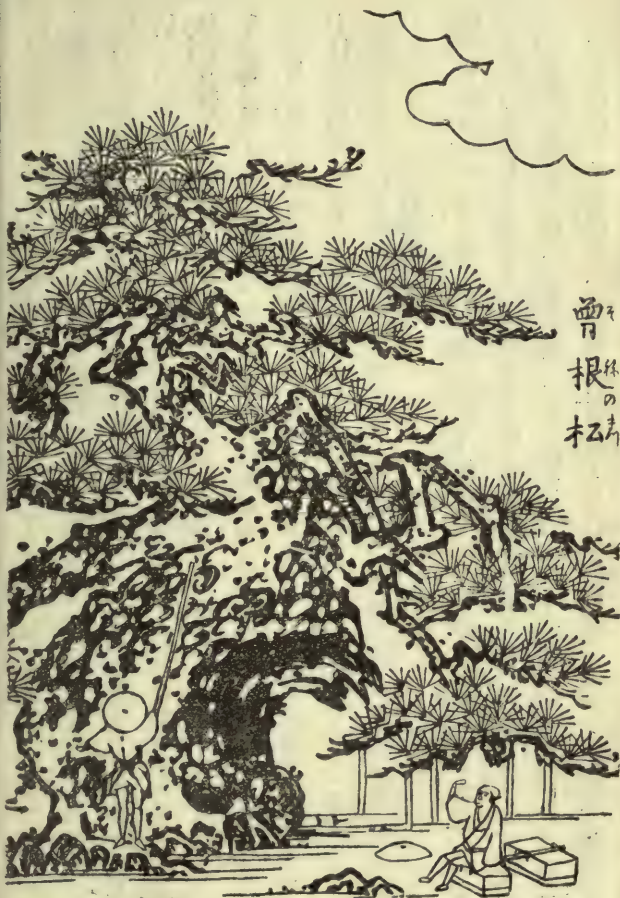 曽根松
そねのまつ